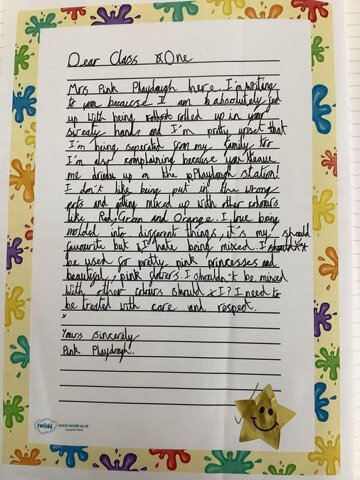 Dear Class One
Mrs Pink Playdough here. I'm writing
to you because I am absolutely fed
up with being rolled up in your
sweaty hands and I'm pretty upset that
I'm being seperated from my family too
I'm also complaining because you leave
me dried up on the Playdough station!
I don't like being put in the wrong
pots and getting mixed up with other colours
like Red, Green and Orange. I love being
molded into different things, it's my
favourite but I hate being mixed. I should
be used for pretty pink princesses and
beautiful, pink flowers I shouldn't be mixed
with other colours should I? I need to
be treated with care and respect.
Yours sincerely
Pink Playdough.
twinkl www.twinkl.co.uk